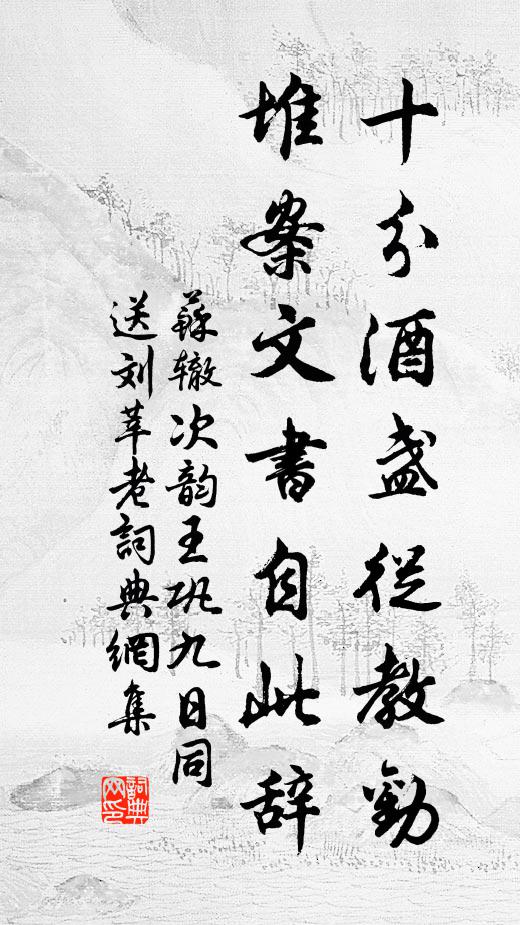 十分酒盏從教勸
堆案文書自此辞
蘇辙次韵王巩九日同
送刘莘老詞典網集
詞典
网印